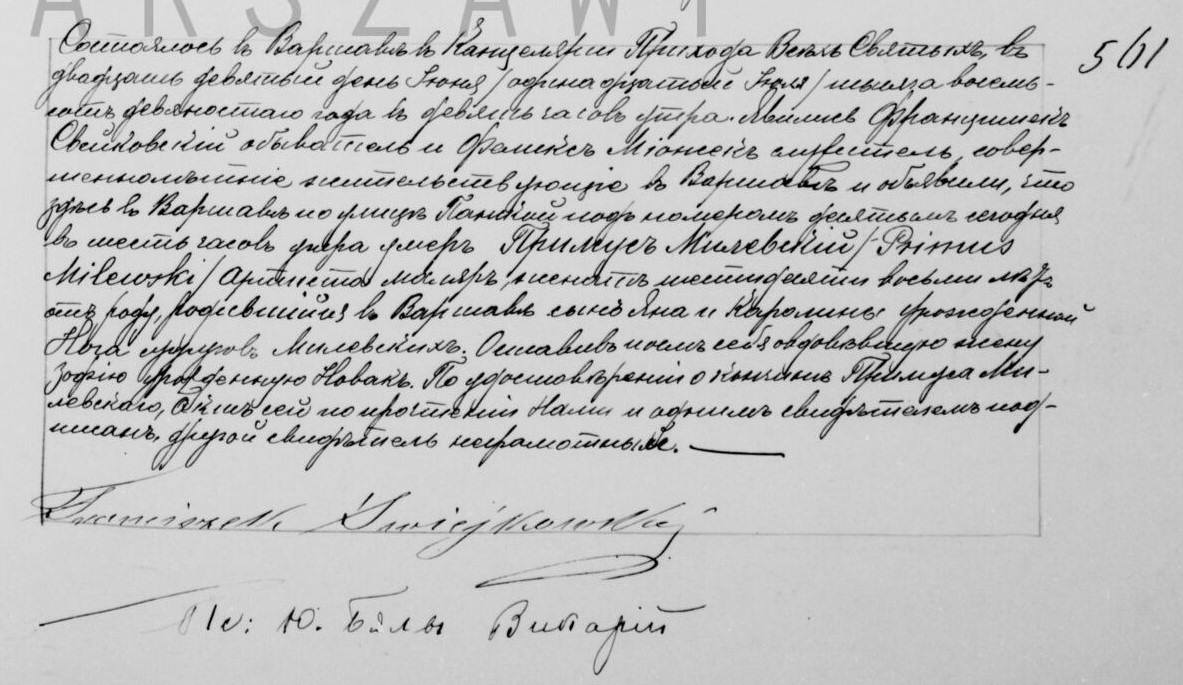 ARSZAWY
Состоялось въ Варшавѣ въ Канцеляріи Прихода Всѣхъ Святыхъ, въ
двадцать девятый день Іюня /одинадцатый Іюля/ тысяча восемь-
сотъ девяностаго года въ девять часовъ утра. Явились Францишекъ
Свейковскій обыватель и Феликсъ Міонжекъ служитель, совер-
шеннолѣтніе жительствующіе въ Варшавѣ и объявили, что
здѣсь въ Варшавѣ по улицѣ Панской подъ номеромъ десятымъ сегодня
въ шесть часовъ утра умеръ Примусъ Милевскій /Primus
Milewski/ Артиста маляръ, женатъ шестидесяти восьми лѣтъ
отъ роду, родившійся въ Варшавѣ сынъ Яна и Каролины урожденной
Нога супруговъ Милевскихъ. Оставивъ послѣ себя овдовѣвшую жену
Зофію урожденную Новакъ. По удостовѣреніи о кончинѣ Примуса Ми-
левскаго, Актъ сей по прочтеніи Нами и однимъ свидѣтелемъ под-
писанъ, другой свидѣтель неграмотный.
Franciszek Swiejkowski
Кс: Ю. Бялы Викарій